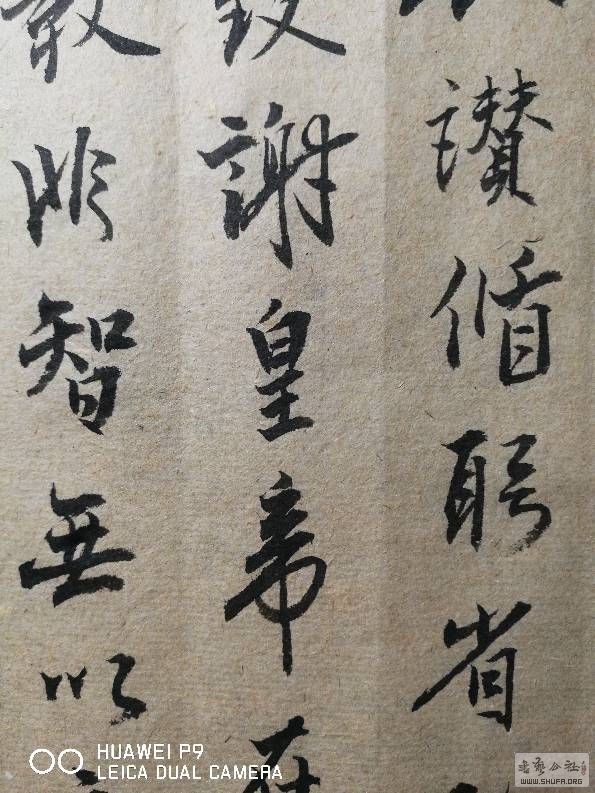 讚循躬省
致謝皇帝在
教非智無以
HUAWEI P9
LEICA DUAL CAMERA
書藝公社
WWW.SHUFA.ORG